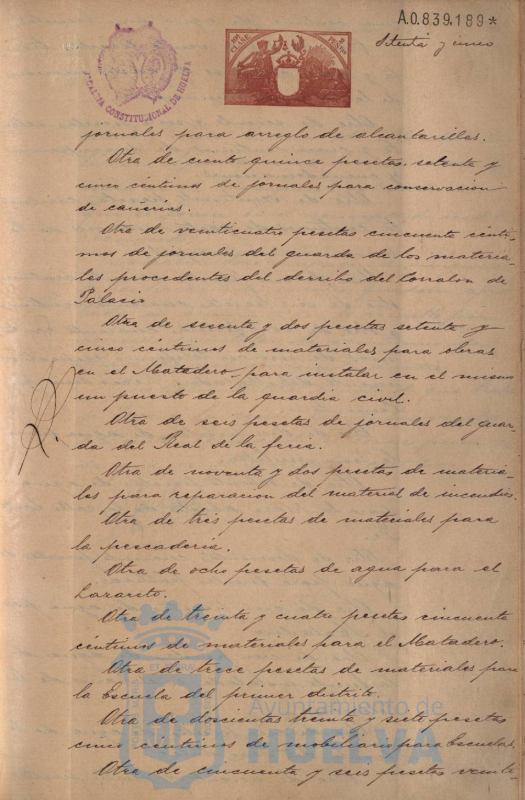 A.0.839.189*
Setenta y cinco
11ª CLASE
ALCALDIA CONSTITUCIONAL DE HUELVA
jornales para arreglo de alcantarillas.
Otra de ciento quince pesetas setenta y
cinco céntimos de jornales para conservacion
de cañerias.
Otra de veinticuatro pesetas cincuenta cénti-
mos de jornales del guarda de los materia-
les procedentes del derribo del Corralon de
Palacio
Otra de sesenta y dos pesetas setenta y
cinco céntimos de materiales para obras
en el Matadero, para instalar en el mismo
un puesto de la guardia civil.
Otra de seis pesetas de jornales del guar-
da del Real de la feria.
Otra de noventa y dos pesetas de materia-
les para reparacion del material de incendios.
Otra de tres pesetas de materiales para
la pescaderia.
Otra de ocho pesetas de agua para el
Lazareto.
Otra de treinta y cuatro pesetas cincuenta
céntimos de materiales para el Matadero.
Otra de trece pesetas de materiales para
la Escuela del primer distrito.
Otra de doscientas treinta y siete pesetas
cinco céntimos de mobiliario para Escuelas.
Otra de cincuenta y seis pesetas veinti-
Ayuntamiento de
HUELVA